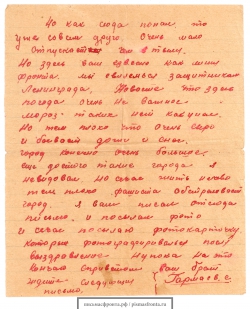 Но как сюда попал, то
уже совсем другое. Очень мало
Отпускают
Но здесь вам известно как линия
фронта. мы являемся защитником
Ленинграда. Новости что здесь
погода очень не важное
мороз таких нет как у нас.
Но тем плохо что очень серо
и бывает дожди и снег.
город конечно очень большое
еще такого города я
невидовал но сейчас жить
тем плохо фашисты обстреливают
город. я вам писал отсюда
письмо. и посылал фото
и сейчас посылаю фотокарточку.
которые фотографировался после
выздровления Ну пока на это
кончаю с приветом ваш брат
ждите следующие
письмо.
Гармаев.
письмасфронта.рф / pismasfronta.ru